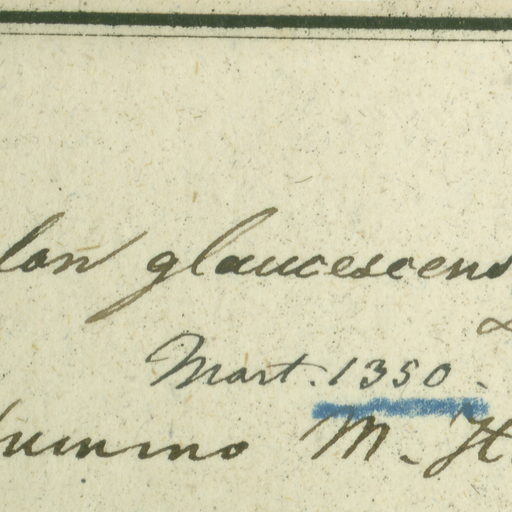 lon glaucescens
Mart. 1350.
M. H